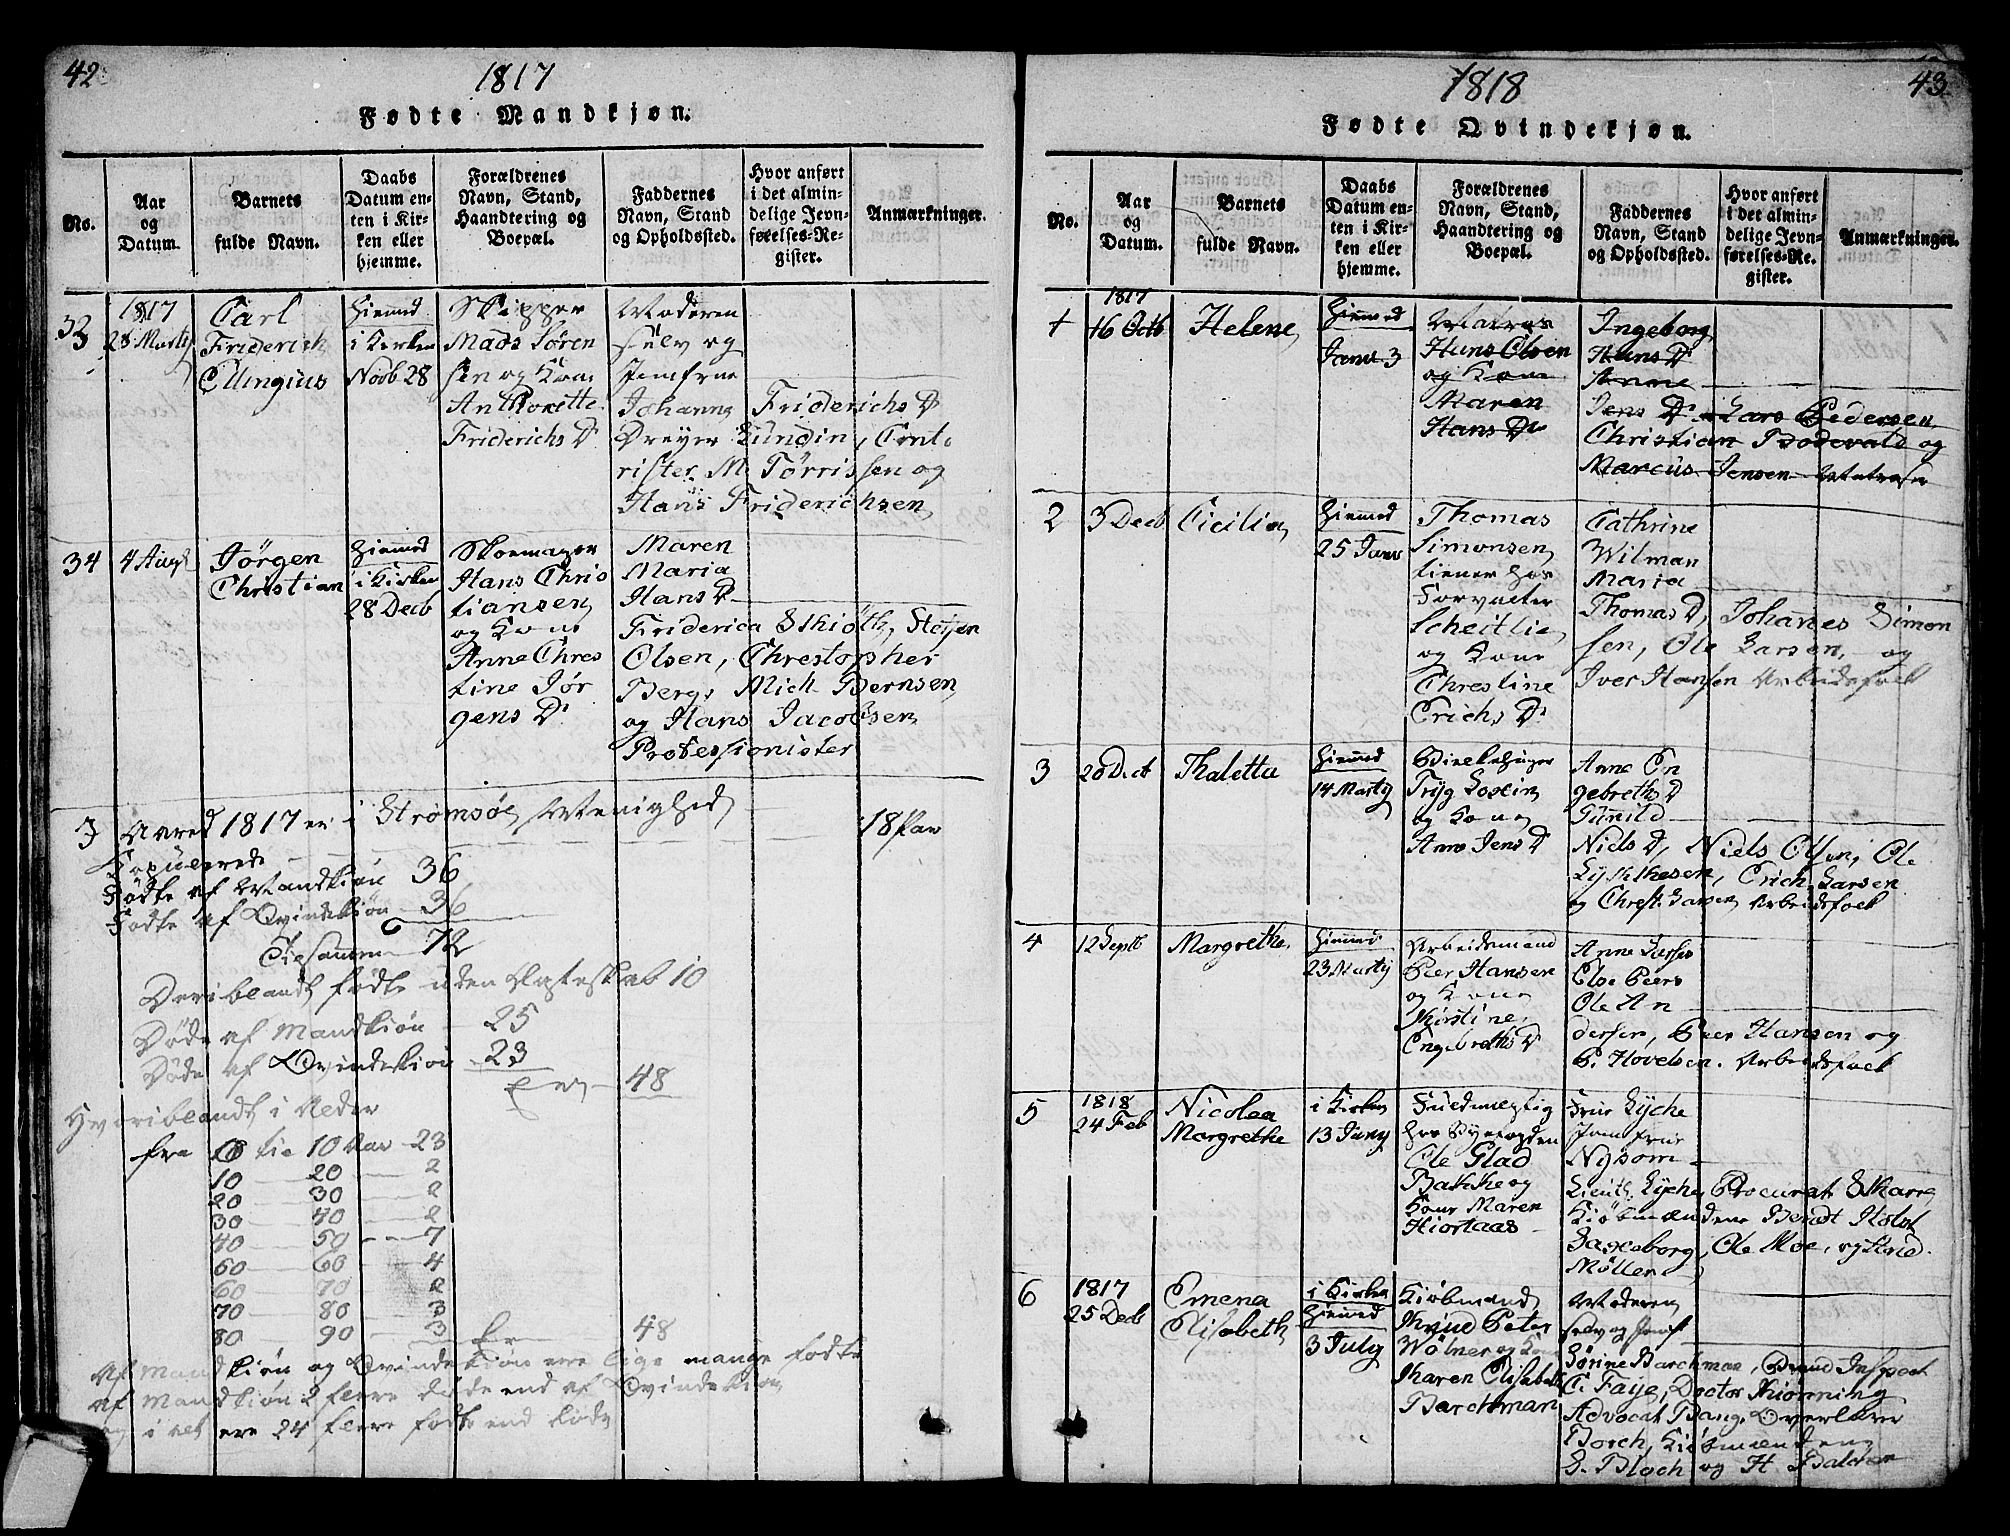 42.
1817
Fødte Mandkjøn.
No.
Aar
og
Datum.
Barnets
fulde Navn.
Daabs
Datum en-
ten i Kir-
ken eller
hjemme.
Forældrenes
Navn, Stand,
Haandtering og
Boepæl.
Faddernes
Navn, Stand
og Opholdssted.
Hvor anført
i det almin-
delige Jevn-
førelses-Re-
gister.
Anmærkninger.
33
1817
28 Marty
Carl
Friderich
Ellingius
Hiemed
i Kirken
Novb 28
Skipper
Mads Søren
sen og Kone
Anthonette
Friderichs D.
Moderen
selv og
Jomfrue
Johanne Friderichs D
Dreyer Lundin, Cont.
rister M. Tørrissen og
Hans Friderichsen
34
4 Augst
Jørgen
Christian
Hiemed
i Kirken
28 Decb
Skoemager
Hans Chris
tiansen
og Kone
Anne Chres
tine Jør
gens D.
Maren
Maria
Hans D.
Friderica Skiøth, Steijen
Olsen, Chrestopher
Berg, Mich. Bernsen
og Hans Jacobsen
Professionister
I Aaret 1817 er i Strømsøe Menighed
Copulerede
18 Par
Fødte af Mandkiøn 36
Fødte af Qvindekiøn 36
Tilsammen 72
Deriblandt fødte uden Ægteskab 10
Døde af Mandkiøn 25
Døde af Qvindekiøn 23
Er 48
Hvoriblandt i Alder
fra 0 til 10 Aar 23
10 20 2
20 30 2
30 40 2
40 50 7
50 60 4
60 70 2
70 80 3
80 90 3
Er 48
Af Mandkiøn og Qvindekiøn ere lige mange fødte
af Mandkiøn 2 flere døde end af Qvindekiøn
og i alt ere 24 flere fødte end døde
43
1818
Fødte Qvindekjøn.
No.
Aar
og
Datum.
Barnets
fulde Navn.
Daabs
Datum en-
ten i Kir-
ken eller
hjemme.
Forældrenes
Navn, Stand,
Haandtering og
Boepæl.
Faddernes
Navn, Stand
og Opholdssted.
Hvor anført
i det almin-
delige Jevn-
førelses-Re-
gister.
Anmærkninger.
1
1817
16 Octb
Helene
Hiemed
Janu 3
Matros
Hans Olsen
og Kone
Maren
Hans D.
Ingeborg
Hans D.
Anne
Jens D. Lars Pedersen
Christian Bodevald og
Marcus Jensen Matroser
2
3 Decb
Cicilia
Hiemed
25 Janu
Thomas
Simonsen
tiener hos
Forvalter
Scheitlie
og Kone
Chrestine
Erichs D.
Cathrine
Wilman
Maria
Thomas D, Johanes Simon
sen, Ole Larsen, og
Iver Hansen Arbeidsfolk
3
20 Oct
Thaletta
Hiemed
14 Marty
Tryg
og Kone
Anne Jens D.
Anne En
gebreths D
Gunild
Niels D, Niels Olsen, Ole
Erich Larsen
og Christ. Larsen Arbeidsfolk
4
12 Septb
Margrethe
Hiemed
23 Marty
Arbeidsmand
Peer Hansen
og Kone
Kirstine
Engebreths D
Anne
Else Peers
Ole An
dersen, Peer Hansen og
P. Hovelsen. Arbeidsfolk
5
1818
24 Feb
Nicolaa
Margrethe
i Kirken
13 Juny
Fuldmægtig
hos Byefogden
Ole Glad
Bakke og
Kone Maren
Hiortaas
Frue Lyche
Jomfrue
Nysom
Lieut. Lyche, Procurat Skarre
Kiøbmændene Berndt Holst
Saxeborg, Ole Moe, og
Møller
6
1817
25 Decb
Emena
Elisabeth
i Kirken
Hiemed
3 July
Kiøbmand
Knud Peter
Wølner og Kone
Karen Elisabeth
Barchman
Moderen
selv og Jomf
Sørine Barchman, Brand Inspect
C. Faije, Doctor Kiønning
Advocat Bang, Overlærer
Borch, Kiøbmændene
S. Bloch og H Balchen